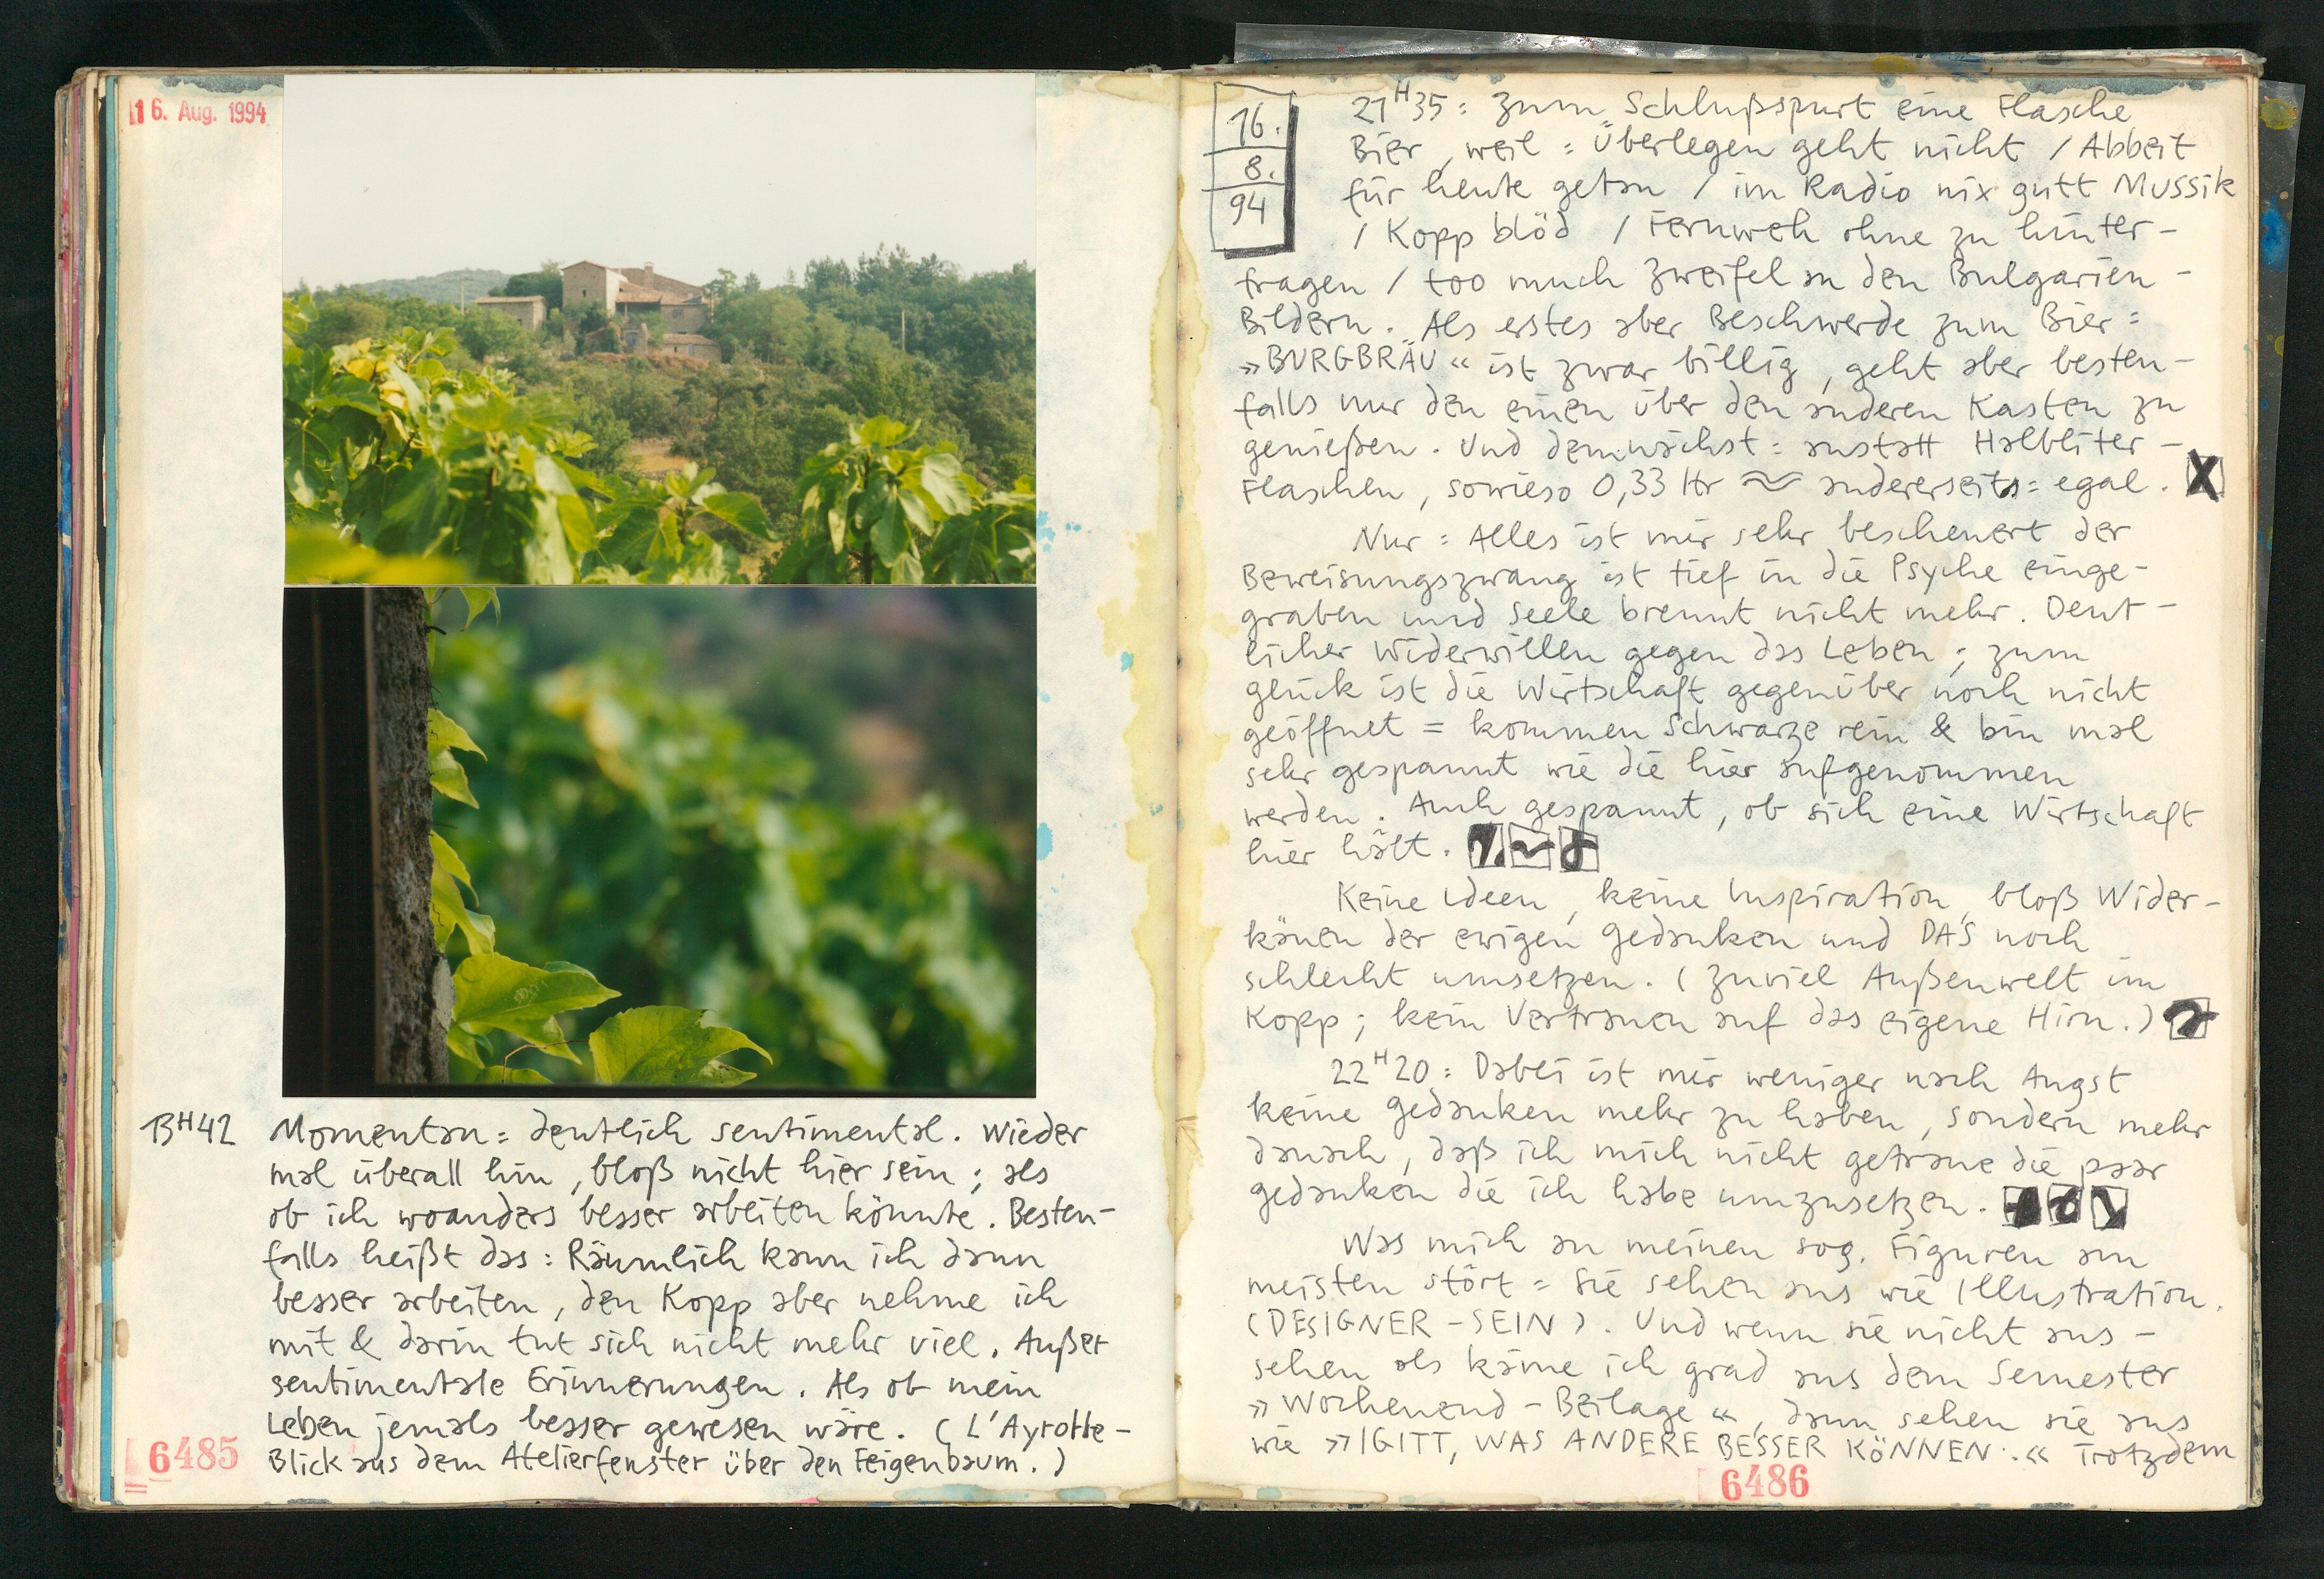 16. Aug. 1994
13H42 Momentan: deutlich sentimental. Wieder
mal überall hin, bloß nicht hier sein; als
ob ich woanders besser arbeiten könnte. Besten-
falls heißt das: Räumlich kann ich dann
besser arbeiten, den Kopp aber nehme ich
mit & darin tut sich nicht mehr viel. Außer
sentimentale Erinnerungen. Als ob mein
Leben jemals besser gewesen wäre. (L'Ayrotte-
Blick aus dem Atelierfenster über den Feigenbaum.)
6485
16.
8.
94
21H35: Zum Schlußspurt eine Flasche
Bier, weil: Überlegen geht nicht / Abbeit
für heute getan / im Radio nix gutt Mussik
/ Kopp blöd / Fernweh ohne zu hinter-
fragen / too much Zweifel an den Bulgarien-
Bildern. Als erstes aber Beschwerde zum Bier:
»BURGBRÄU« ist zwar billig, geht aber besten-
falls nur den einen über den anderen Kasten zu
genießen. Und demnächst: anstatt Halbliter-
Flaschen, sowieso 0,33 ltr ≈ andererseits: egal. X
Nur: Alles ist mir sehr bescheuert der
Beweisungszwang ist tief in die Psyche einge-
graben und Seele brennt nicht mehr. Deut-
licher Widerwillen gegen das Leben; zum
Glück ist die Wirtschaft gegenüber noch nicht
geöffnet = kommen Schwarze rein & bin mal
sehr gespannt wie die hier aufgenommen
werden. Auch gespannt, ob sich eine Wirtschaft
hier hält.
Keine Ideen, keine Inspiration, bloß Wider-
känen der ewigen Gedanken und DAS noch
schlecht umsetzen. (Zuviel Außenwelt im
Kopp; kein Vertrauen auf das eigene Hirn.)
22H20: Dabei ist mir weniger nach Angst
keine Gedanken mehr zu haben, sondern mehr
danach, daß ich mich nicht getraue die paar
Gedanken die ich habe umzusetzen.
Was mich an meinen sog. Figuren am
meisten stört = Sie sehen aus wie Illustration.
(DESIGNER-SEIN). Und wenn sie nicht aus-
sehen als käme ich grad aus dem Semester
»Wochenend-Beilage«, dann sehen sie aus
wie »IGITT, WAS ANDERE BESSER KÖNNEN.« Trotzdem
6486